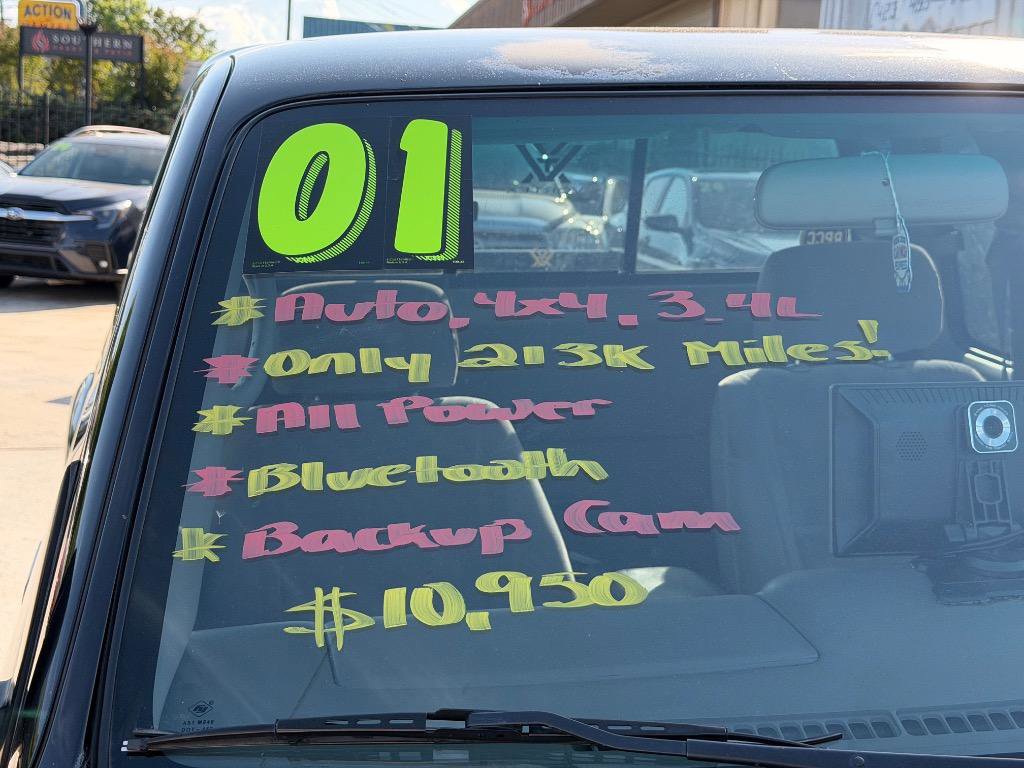 ACTION
SOUTHERN
01
* Auto, 4x4, 3.4L
* Only 213K Miles!
* All Power
* Bluetooth
* Backup Cam
$10,950